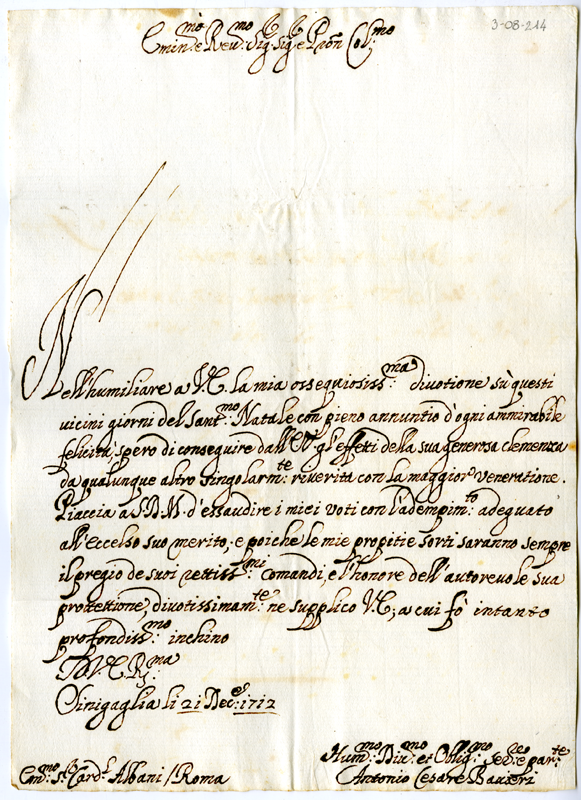 3-08-214
Emin:mo e Rev:mo Sig:r Sig:r e Pron Col:mo
Nell'humiliare a V.E. la mia ossequiosiss:ma divotione sù questi
vicini giorni del Sant:mo Natale con pieno annuntio d'ogni ammirabile
felicità, spero di conseguire dall'E.V. gl'effetti della sua generosa clemenza
da qualunque altro singolarm:te riverita con la maggior veneratione.
Piaccia a S.D.M. d'essaudire i miei voti con l'adempim:to adeguato
all'Eccelso suo merito, e poiche le mie propitie sorti saranno sempre
il pregio de suoi rettiss:mi comandi, e l'honore dell'autorevole sua
prottettione, divotissimam:te ne supplico V.E., a cui fò intanto
profondiss:mo inchino
Di V.E. R:ma
Sinigaglia li 21 Dec:e 1712
Hum:mo Div:mo et Oblig:mo Ser:re e par:te
Em:mo S:r Card:l Albani / Roma
Antonio Cesare